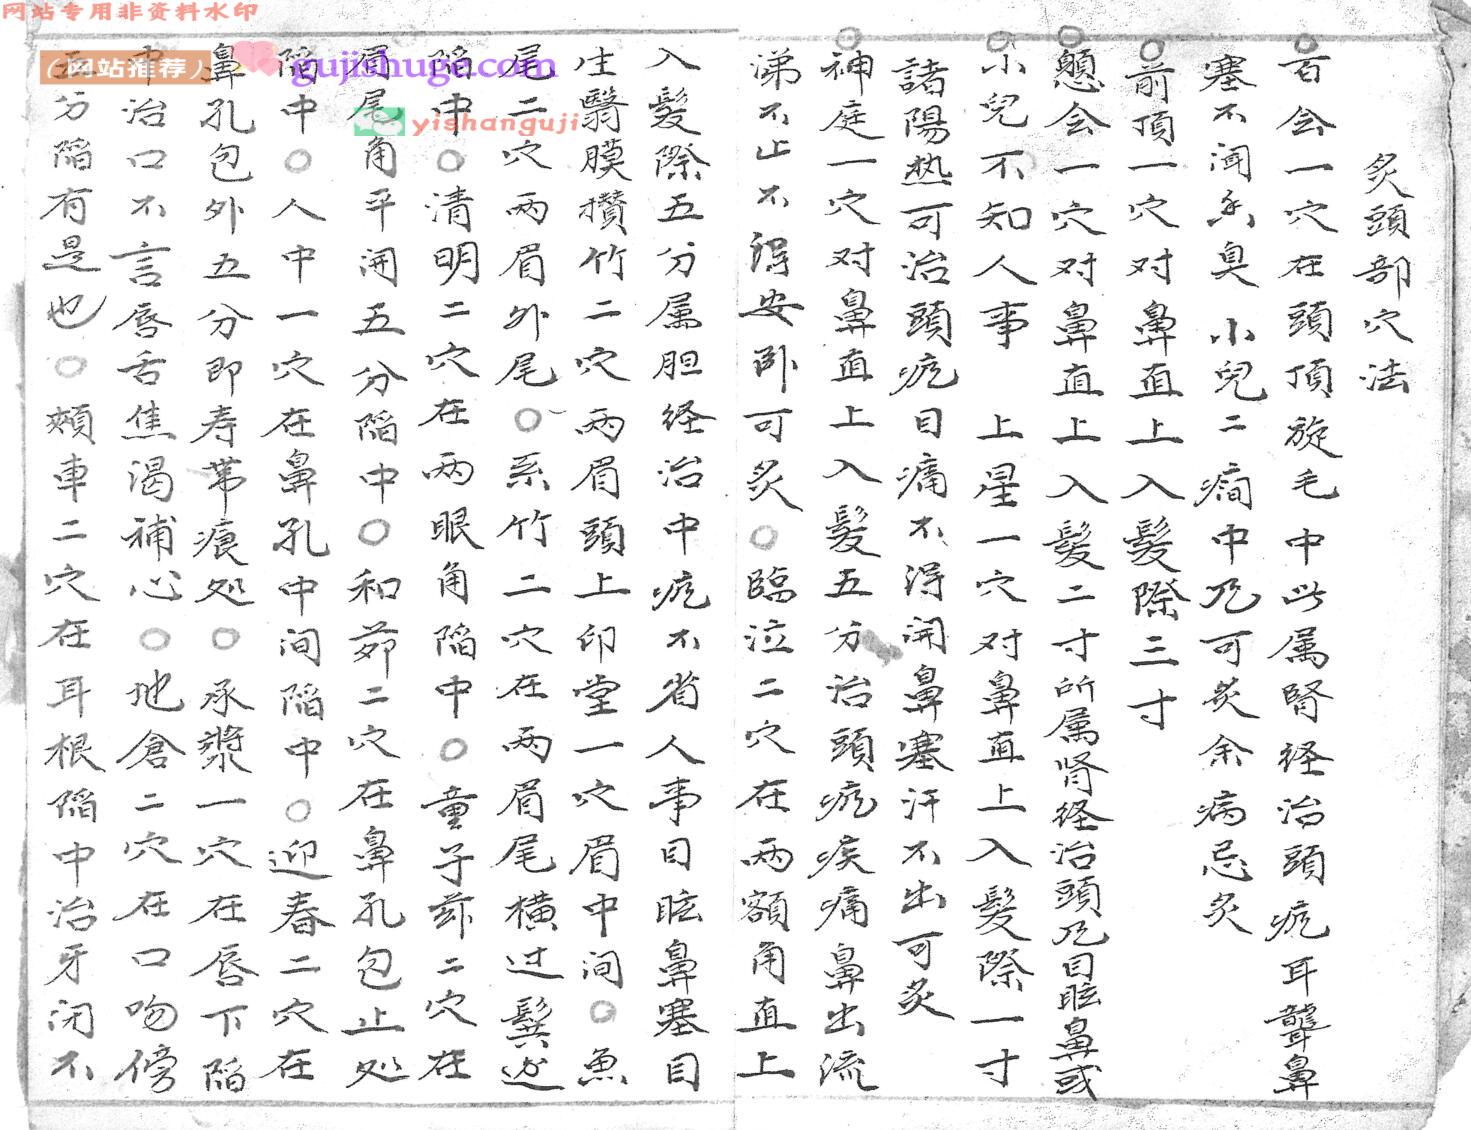 网站专用非资料水印
(网站推荐)
gujishuge.com
yishanguji
炙頭部穴法
百会一穴在頭頂旋毛中此属腎経治頭疼耳聾鼻
塞不闻香臭 小兒二癎中風可炙余病忌炙
前頂一穴对鼻直上入髮際三寸
顖会一穴对鼻直上入髮二寸所属肾経治頭風目眩鼻或
小兒不知人事 上星一穴对鼻直上入髮際一寸
諸陽热可治頭疼目痛不淂開鼻塞汗不出可炙
神庭一穴对鼻直上入髮五分治頭疼疾痛鼻出流
涕不止不淂安卧可炙○臨泣二穴在两額角直上
入髮際五分属胆経治中疼不省人事目眩鼻塞目
生翳膜攅竹二穴两眉頭上印堂一穴眉中间○魚
尾二穴两眉外尾○系竹二穴在两眉尾横过鬓边
陷中○清明二穴在两眼角陷中○童子茆二穴在
眉尾角平開五分陷中○和茆二穴在鼻孔包止处
陷中○人中一穴在鼻孔中间陷中○迎春二穴在
鼻孔包外五分即寿带痕处○承漿一穴在唇下陷
中治口不言唇舌焦渴補心○地倉二穴在口吻傍
五分陷有是也○頰車二穴在耳根陷中治牙闭不